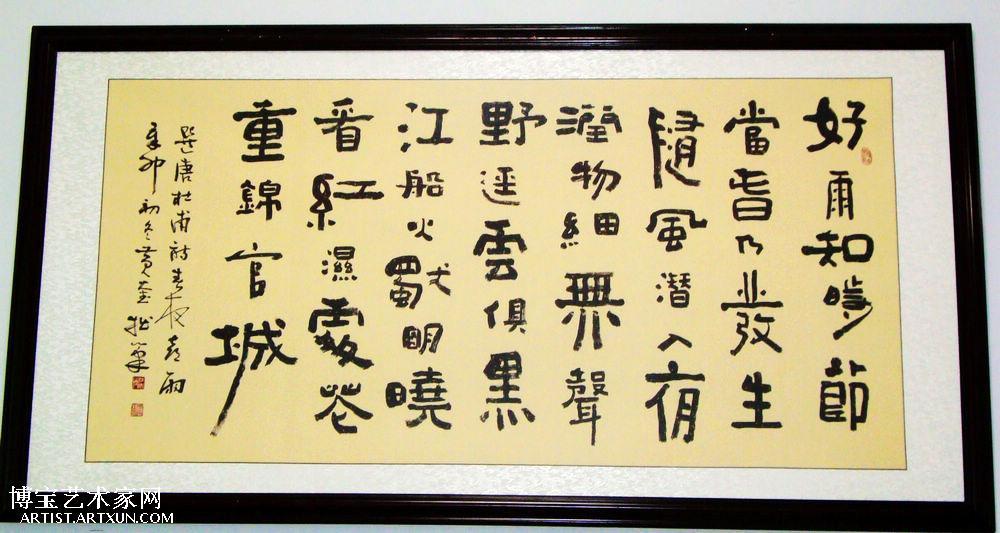 好雨知時節
當春乃發生
隨風潛入夜
潤物細無聲
野逕雲俱黑
江船火獨明曉
看紅濕處花
重錦官城
選唐杜甫詩春夜喜雨
辛卯初冬黄奎拙筆
博宝艺术家网
ARTIST.ARTXUN.COM